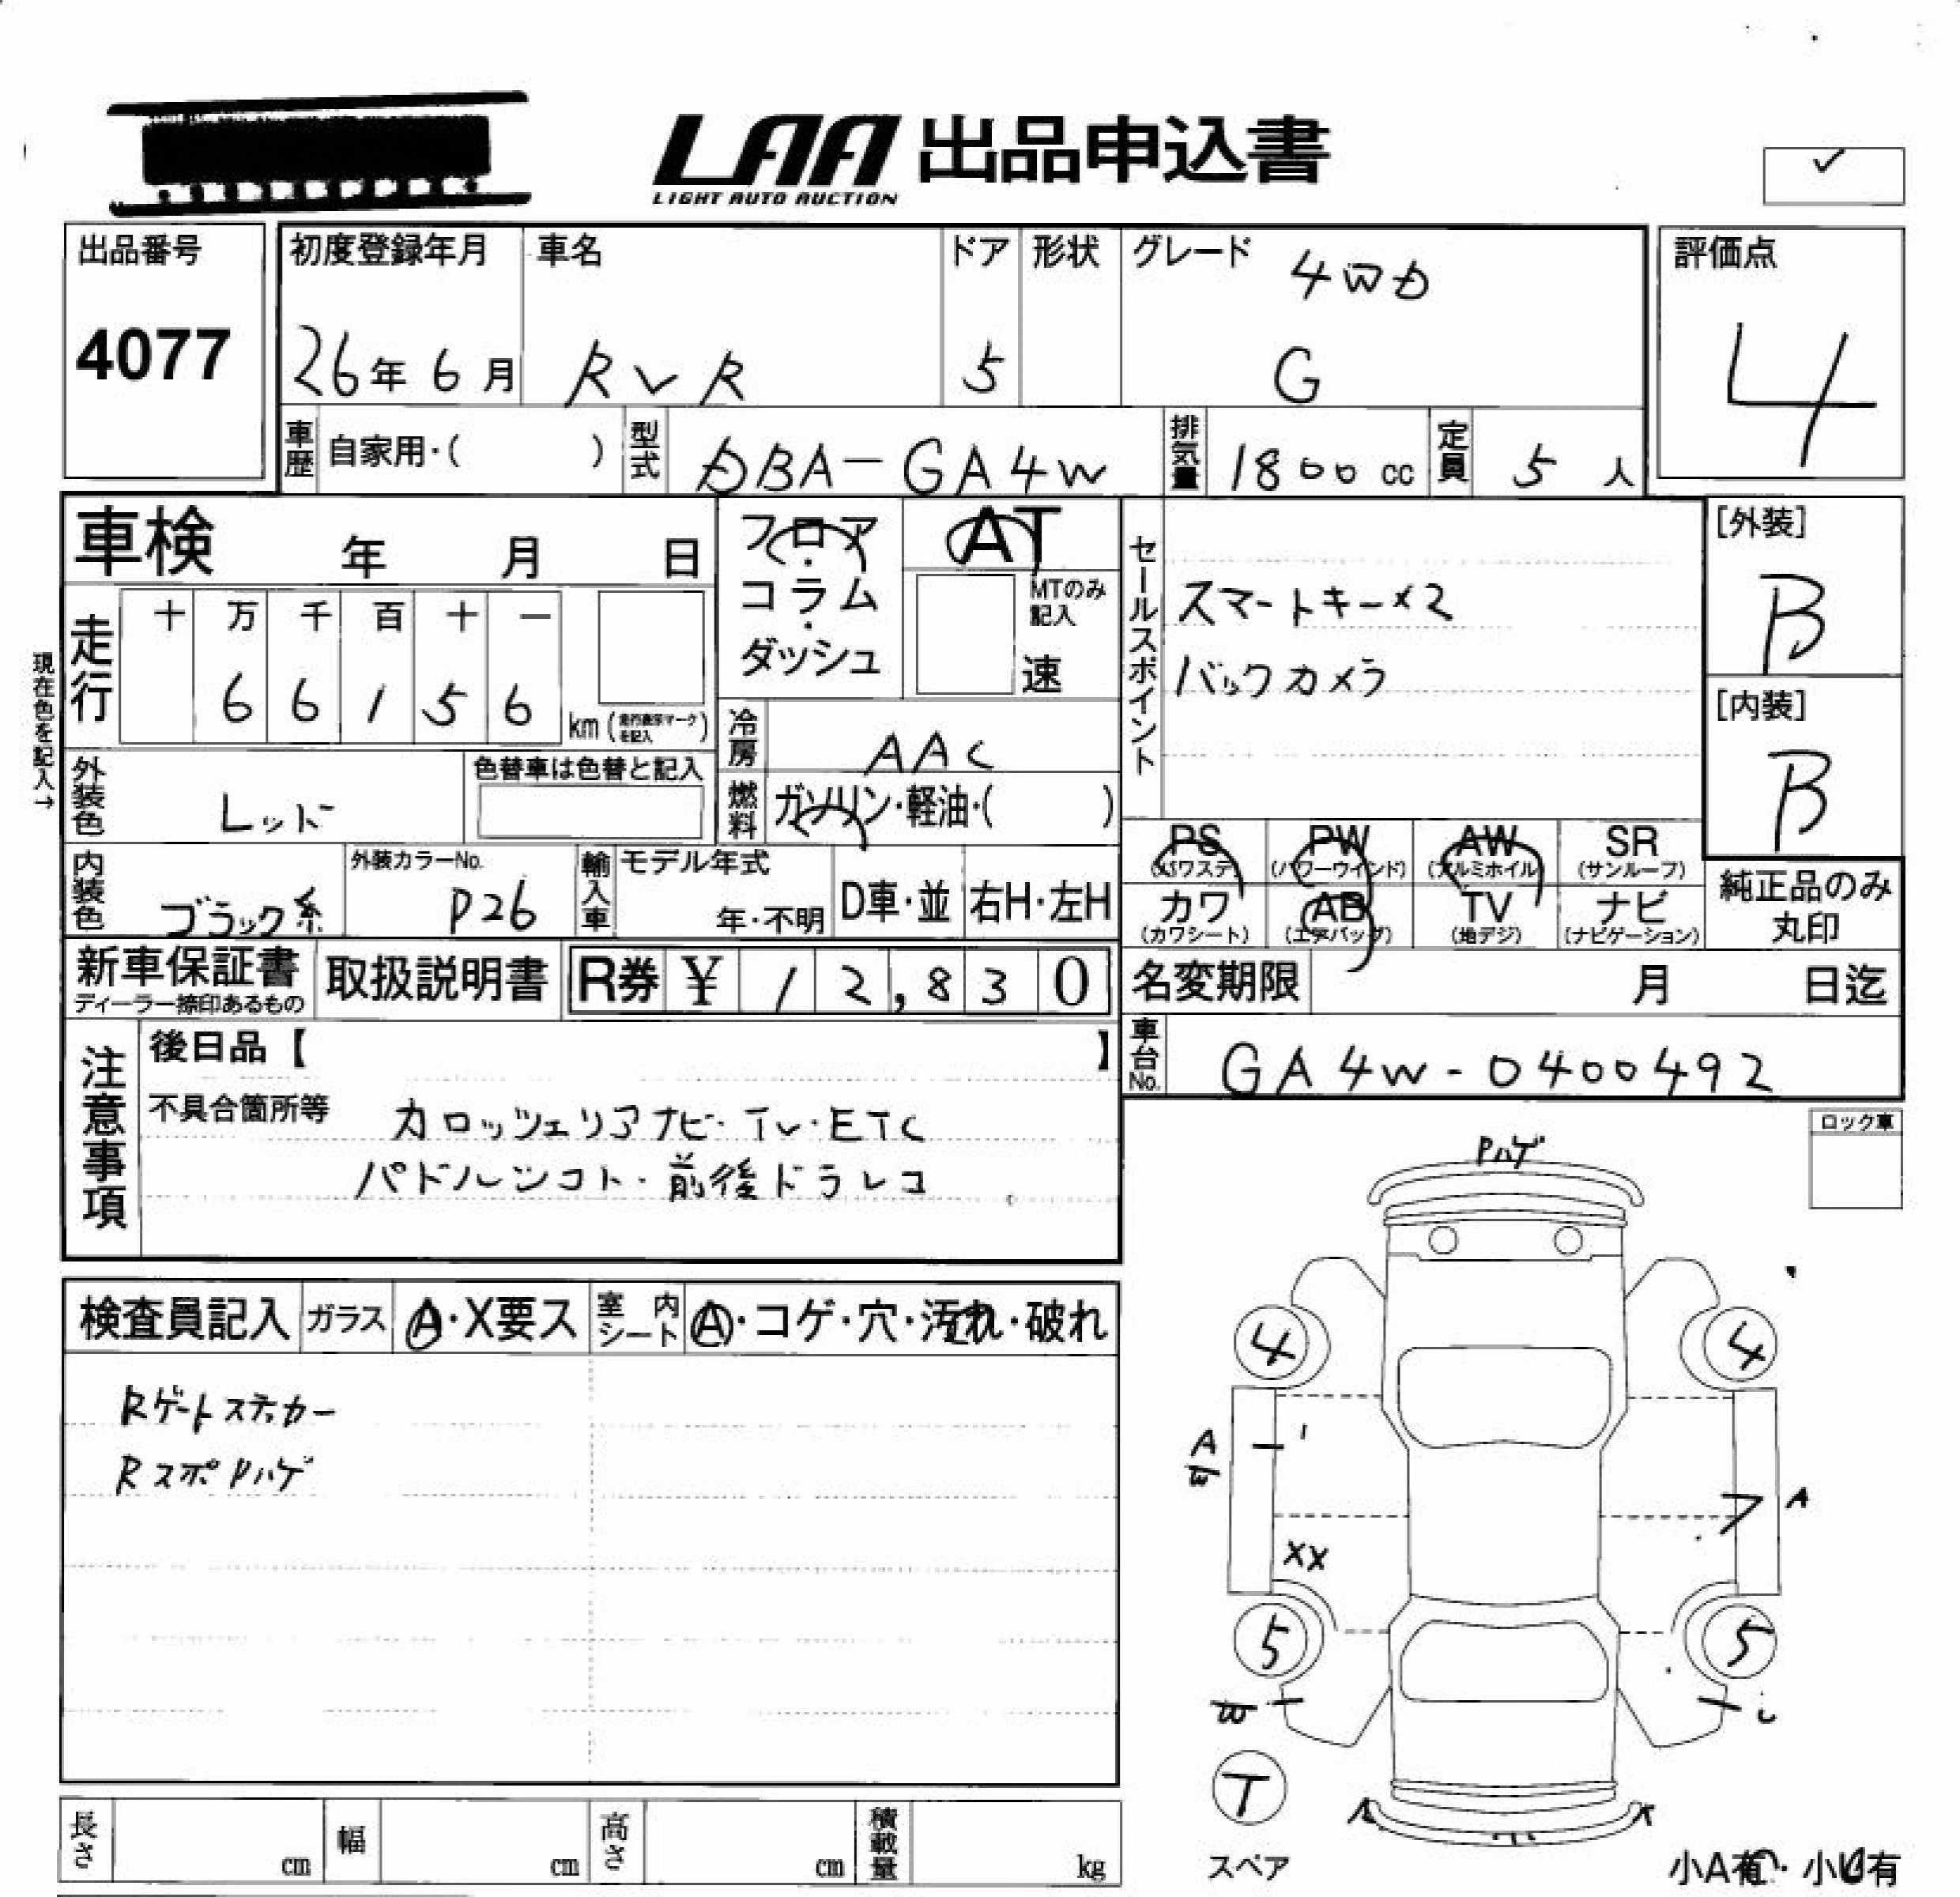 LAA 出品申込書
LIGHT AUTO AUCTION
✓
出品番号
4077
初度登録年月
26年6月
車名
RVR
ドア
5
形状
グレード
4WD
G
評価点
4
車歴
自家用・( )
型式
DBA-GA4W
排気量
1800cc
定員
5人
車検 年 月 日
フロア・コラム・ダッシュ
AT
MTのみ記入
速
セールスポイント
スマートキー×2
バックカメラ
[外装]
B
[内装]
B
現在色を記入→
走行
十 万 千 百 十 一
6 6 1 5 6
km (走行表示マークを記入)
冷房
AAC
外装色
レッド
色替車は色替と記入
燃料
ガソリン・軽油・( )
PS
(パワステ)
PW
(パワーウインド)
AW
(アルミホイル)
SR
(サンルーフ)
カワ
(カワシート)
AB
(エアバッグ)
TV
(地デジ)
ナビ
(ナビゲーション)
純正品のみ
丸印
内装色
ブラック系
外装カラーNo.
P26
輸入車
モデル年式
年・不明
D車・並
右H・左H
新車保証書
ディーラー捺印あるもの
取扱説明書
R券 ¥ 12,830
名変期限 月 日迄
車台No.
GA4W-0400492
注意事項
後日品【 】
不具合箇所等
カロッツェリアナビ・TV・ETC
パドルシフト・前後ドラレコ
ロック車
Pハゲ
検査員記入
ガラス
A・X要ス
室内シート
A・コゲ・穴・汚れ・破れ
Rゲートステッカー
RスポPハゲ
4
4
A
A
XX
5
5
T
スペア
小A有・小U有
長さ cm
幅 cm
高さ cm
積載量 kg